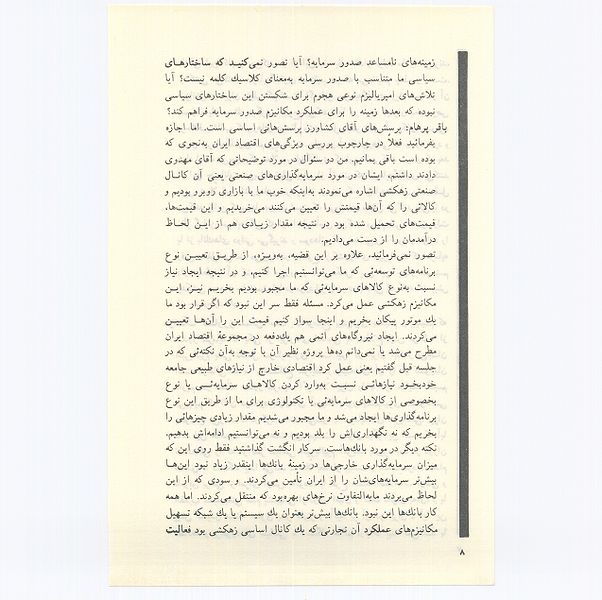 زمینه‌های نامساعد صدور سرمایه؟ آیا تصور نمی‌کنید که ساختارهای
سیاسی ما متناسب با صدور سرمایه به‌معنای کلاسیك کلمه نیست؟ آیا
تلاش‌های امپریالیزم نوعی هجوم برای شکستن این ساختارهای سیاسی
نبوده که بعدها زمینه را برای عملکرد مکانیزم صدور سرمایه فراهم کند؟
باقر پرهام: پرسش‌های آقای کشاورز پرسش‌هائی اساسی است. اما اجازه
بفرمائید فعلاً در چارچوب بررسی ویژگی‌های اقتصاد ایران به‌نحوی که
بوده است باقی بمانیم. من دو سئوال در مورد توضیحاتی که آقای مهدوی
دادند داشتم، ایشان در مورد سرمایه‌گذاری‌های صنعتی یعنی آن کانال
صنعتی زهکشی اشاره می‌نمودند به‌اینکه خوب ما با بازاری روبرو بودیم و
کالائی را که آن‌ها قیمتش را تعیین می‌کنند می‌خریدیم و این قیمت‌ها،
قیمت‌های تحمیل شده بود در نتیجه مقدار زیادی هم از این لحاظ
درآمدمان را از دست می‌دادیم.
تصور نمی‌فرمائید، علاوه بر این قضیه، به‌ویژه، از طریق تعیین نوع
برنامه‌های توسعه‌ئی که ما می‌توانستیم اجرا کنیم، و در نتیجه ایجاد نیاز
نسبت به‌نوع کالاهای سرمایه‌ئی که ما مجبور بودیم بخریم نیز، این
مکانیزم زهکشی عمل می‌کرد. مسئله فقط سر این نبود که اگر قرار بود ما
یك موتور پیکان بخریم و اینجا سوار کنیم قیمت این را آن‌ها تعیین
می‌کردند. ایجاد نیروگاه‌های اتمی هم یك‌دفعه در مجموعهٔ اقتصاد ایران
مطرح می‌شد یا نمی‌دانم ده‌ها پروژه نظیر آن با توجه به‌آن نکته‌ئی که در
جلسه قبل گفتیم یعنی عمل کرد اقتصادی خارج از نیازهای طبیعی جامعه
خودبخود نیازهائی نسبت به‌وارد کردن کالاهای سرمایه‌ئی یا نوع
بخصوصی از کالاهای سرمایه‌ئی یا تکنولوژی برای ما از طریق این نوع
برنامه‌گذاری‌ها ایجاد می‌شد و ما مجبور می‌شدیم مقدار زیادی چیزهائی را
بخریم که نه نگهداری‌اش را بلد بودیم و نه می‌توانستیم ادامه‌اش بدهیم.
نکته دیگر در مورد بانك‌هاست. سرکار انگشت گذاشتید فقط روی این که
میزان سرمایه‌گذاری خارجی‌ها در زمینهٔ بانك‌ها اینقدر زیاد نبود این‌ها
بیش‌تر سرمایه‌های‌شان را از ایران تأمین می‌کردند. و سودی که از این
لحاظ می‌بردند مابه‌التفاوت نرخ‌های بهره‌بود که منتقل می‌کردند. اما همه
کار بانك‌ها این نبود. بانك‌ها بیش‌تر بعنوان یك سیستم یا یك شبکه تسهیل
مکانیزم‌های عملکرد آن تجارتی که یك کانال اساسی زهکشی بود فعالیت
۸